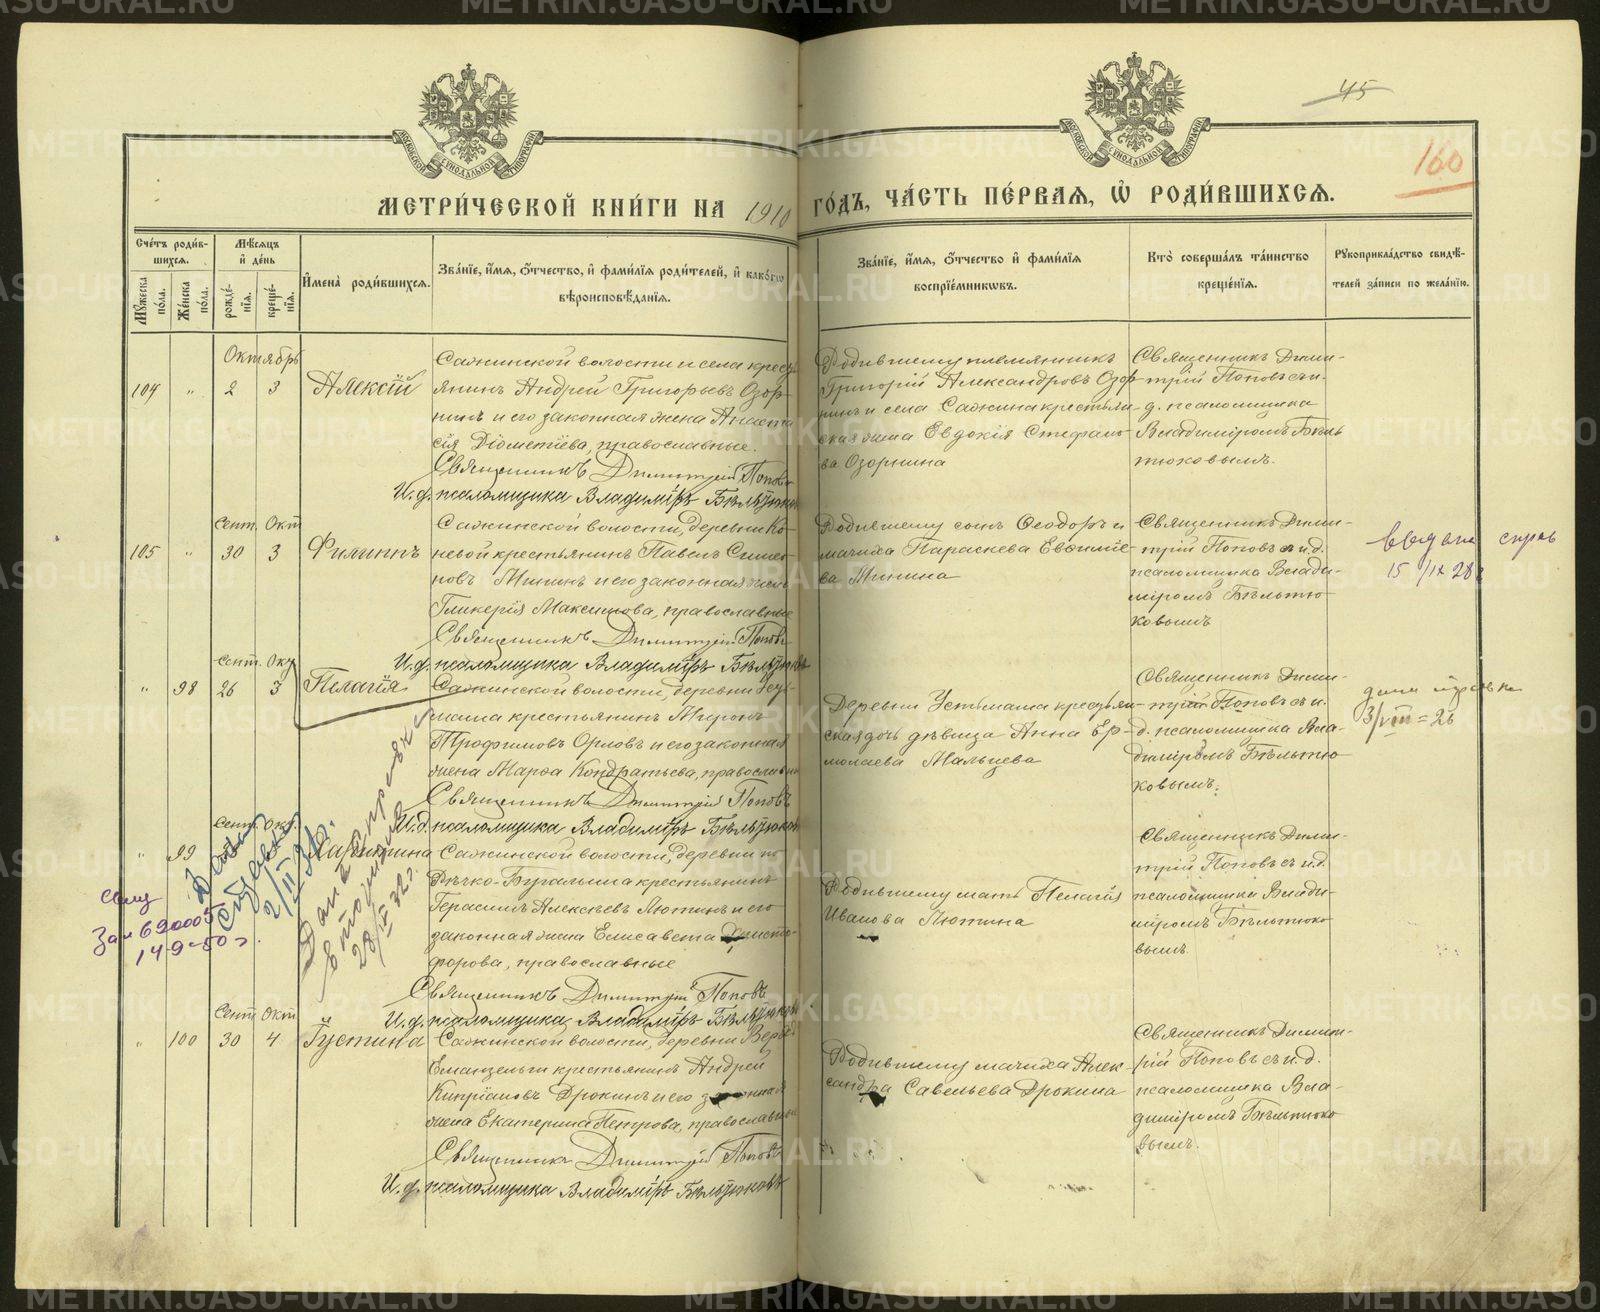 45
160
МЕТРИ́ЧЕСКОЙ КНИ́ГИ НА 1910 ГО́ДЪ, ЧА́СТЬ ПЕ́РВАЯ, Ѿ РОДИ́ВШИХСЯ.
Сче́тъ роди́вшихся.
Му́жеска по́ла.
Же́нска по́ла.
Мѣ́сяцъ и҆ де́нь
рожде́нїя.
креще́нїя.
И҆мена̀ роди́вшихся.
Зва́нїе, и҆́мя, ѻ҆́тчество, и҆ фами́лїя роди́телей, и҆ како́гѡ
вѣроисповѣ́данїя.
Зва́нїе, и҆́мя, ѻ҆́тчество и҆ фами́лїя
воспрїе́мникѡвъ.
Кто̀ соверша́лъ та́инство
креще́нїя.
Рꙋкоприкла́дство свидѣ́-
телей за́писи по жела́нїю.
Октябрь
104 " 2 3 Алексій
Сажинской волости и села кресть
янинъ Андрей Григорьевъ Озор-
нинъ и его законная жена Анаста
сія Діомитіева, православные.
Священникъ Димитрій Поповъ
И.д. псаломщика Владиміръ Бѣлтюковъ
Родившему племянникъ
Григорій Александровъ Озор
нинъ и села Сажина крестьян-
ская жена Евдокія Стефано-
ва Озорнина
Священникъ Дими-
трій Поповъ съ и.
д. псаломщика
Владиміромъ Бѣль
тюковымъ.
Сент. Окт
105 " 30 3 Филиппъ
Сажинской волости, деревни Ко-
невой крестьянинъ Павелъ Симео-
новъ Мининъ и его законная жена
Гликерія Максимова, православные
Священникъ Димитрій Поповъ
И.д. псаломщика Владиміръ Бѣлтюковъ
Родившему сынъ Ѳеодоръ и
мачиха Параскева Евѳиміе-
ва Минина
Священникъ Дими-
трій Поповъ с и.д.
псаломщика Влади-
міромъ Бѣльтю-
ковымъ
выдана справ
15/IX 28 г
Сент. Окт
" 98 26 3 Пелагія
Сажинской волости, деревни Усть-
маша крестьянинъ Миронъ
Трофимовъ Орловъ и его законная
жена Марѳа Кондратьева, православные
Священникъ Димитрій Поповъ
И.д. псаломщика Владиміръ Бѣлтюковъ
Деревни Устьмаша крестьян-
ская дочь дѣвица Анна Ер-
молаева Мальцева
Священникъ Дими-
трій Поповъ съ и.
д. псаломщика Вла-
диміромъ Бѣльтю
ковымъ.
дана справка
3/VIII = 26
Сент. Окт.
" 99
Сажинской волости, деревни
Бугалыша крестьянинъ
Герасимъ Алексѣевъ Лютинъ и его
законная жена Елисавета Христо-
форова, православные
Священникъ Димитрій Поповъ
И.д. псаломщика Владиміръ Бѣлтюковъ
Родившему мать Пелагія
Иванова Лютина
Священникъ Дими-
трій Поповъ съ и.д.
псаломщика Влади-
міромъ Бѣльтюко
вымъ.
Зам 690005
14-9-50 г.
2/II 31 г.
28/IX 32 г.
Сент Окт
" 100 30 4 Іустина
Сажинской волости, деревни Верхъ
крестьянинъ Андрей
Кипріановъ Дрокинъ и его законная
жена Екатерина Петрова, православные
Священникъ Димитрій Поповъ
И.д. псаломщика Владиміръ Бѣлтюковъ
Родившему мачиха Алек-
сандра Савельева Дрокина
Священникъ Димит-
рій Поповъ съ и.д.
псаломщика Вла-
диміромъ Бѣльтюко
вымъ.
METRIKI.GASO-URAL.RU